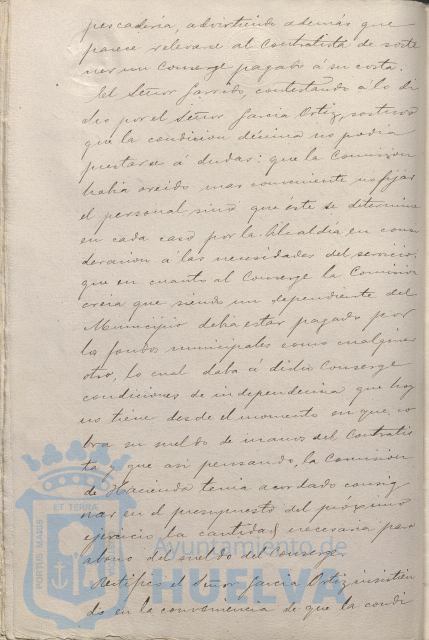 pescaderia, advirtiendo además que
parece relevarse al Contratista de soste
ner un Conserge pagado á su costa.
El Señor Garrido, contestando a lo di
cho por el Señor Garcia Ortiz, sostuvo
que la condicion décima no podia
prestarse á dudas: que la Comision
habia creido mas conveniente no fijar
el personal sinó que éste se determine
en cada caso por la Alcaldía en consi
deracion á las necesidades del servicio:
que en cuanto al Conserge la Comision
creia que siendo un dependiente del
Municipio debia estar pagado por
los fondos municipales como cualquier
otro, lo cual daba á dicho Conserge
condiciones de independencia que hoy
no tiene desde el momento en que co
bra su sueldo de manos del Contratis
ta y que asi pensando, la Comision
de Hacienda tenia acordado consig
nar en el presupuesto del próximo
ejercicio la cantidad necesaria para
abono del sueldo del Conserge.
Rectificó el Señor Garcia Ortiz insistien
do en la conveniencia de que la condi
PORTUS MARIS
ET TERRÆ
Ayuntamiento de
HUELVA